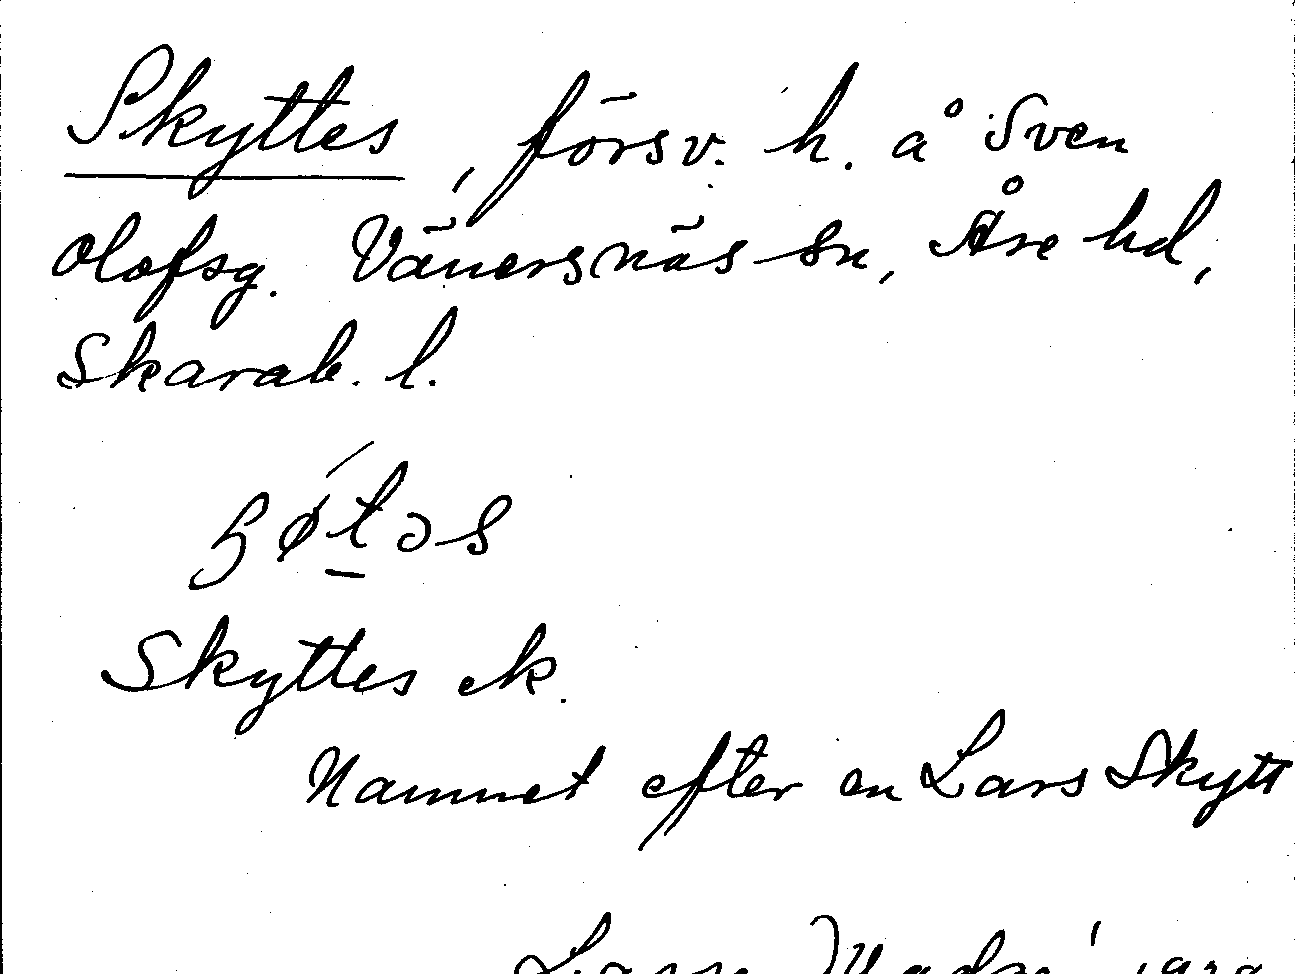 Skyttes, försv. h. å Sven
Olofsg. Vänersnäs sn, Åse hd,
Skarab. l.
Skyttes ek.
Namnet efter en Lars Skytt